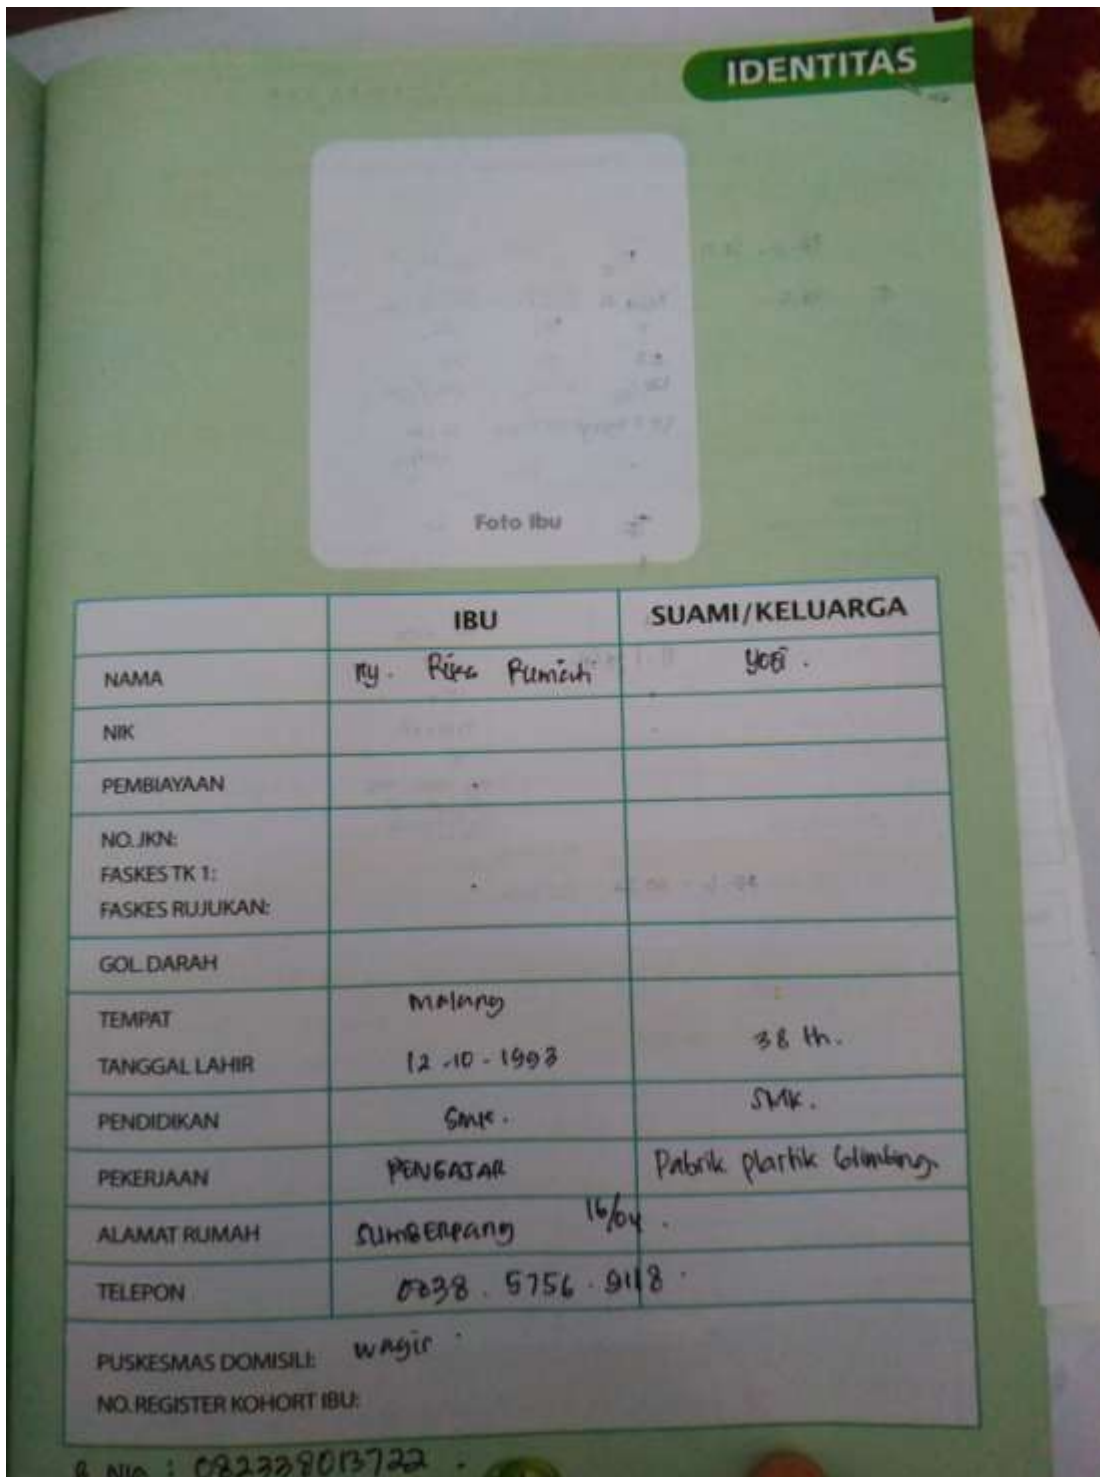 IDENTITAS
Foto Ibu
IBU SUAMI/KELUARGA
NAMA Ny. Riska Rumiati Yogi.
NIK
PEMBIAYAAN
NO. JKN:
FASKES TK 1:
FASKES RUJUKAN:
GOL. DARAH
TEMPAT Malang
TANGGAL LAHIR 12-10-1993 38 th.
PENDIDIKAN SMK. SMK.
PEKERJAAN PENGAJAR Pabrik plastik Blimbing.
ALAMAT RUMAH SUMBERPANG 16/04.
TELEPON 0838. 5756. 9118.
PUSKESMAS DOMISILI: Wagir
NO. REGISTER KOHORT IBU:
: 082338013722.